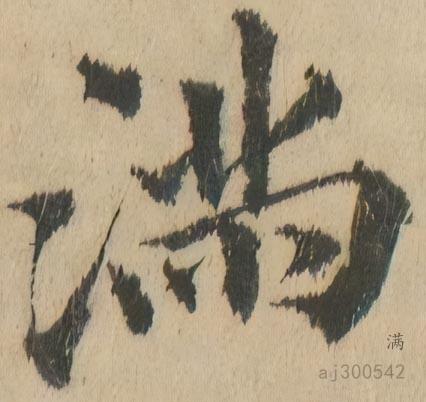 滿
满
aj300542